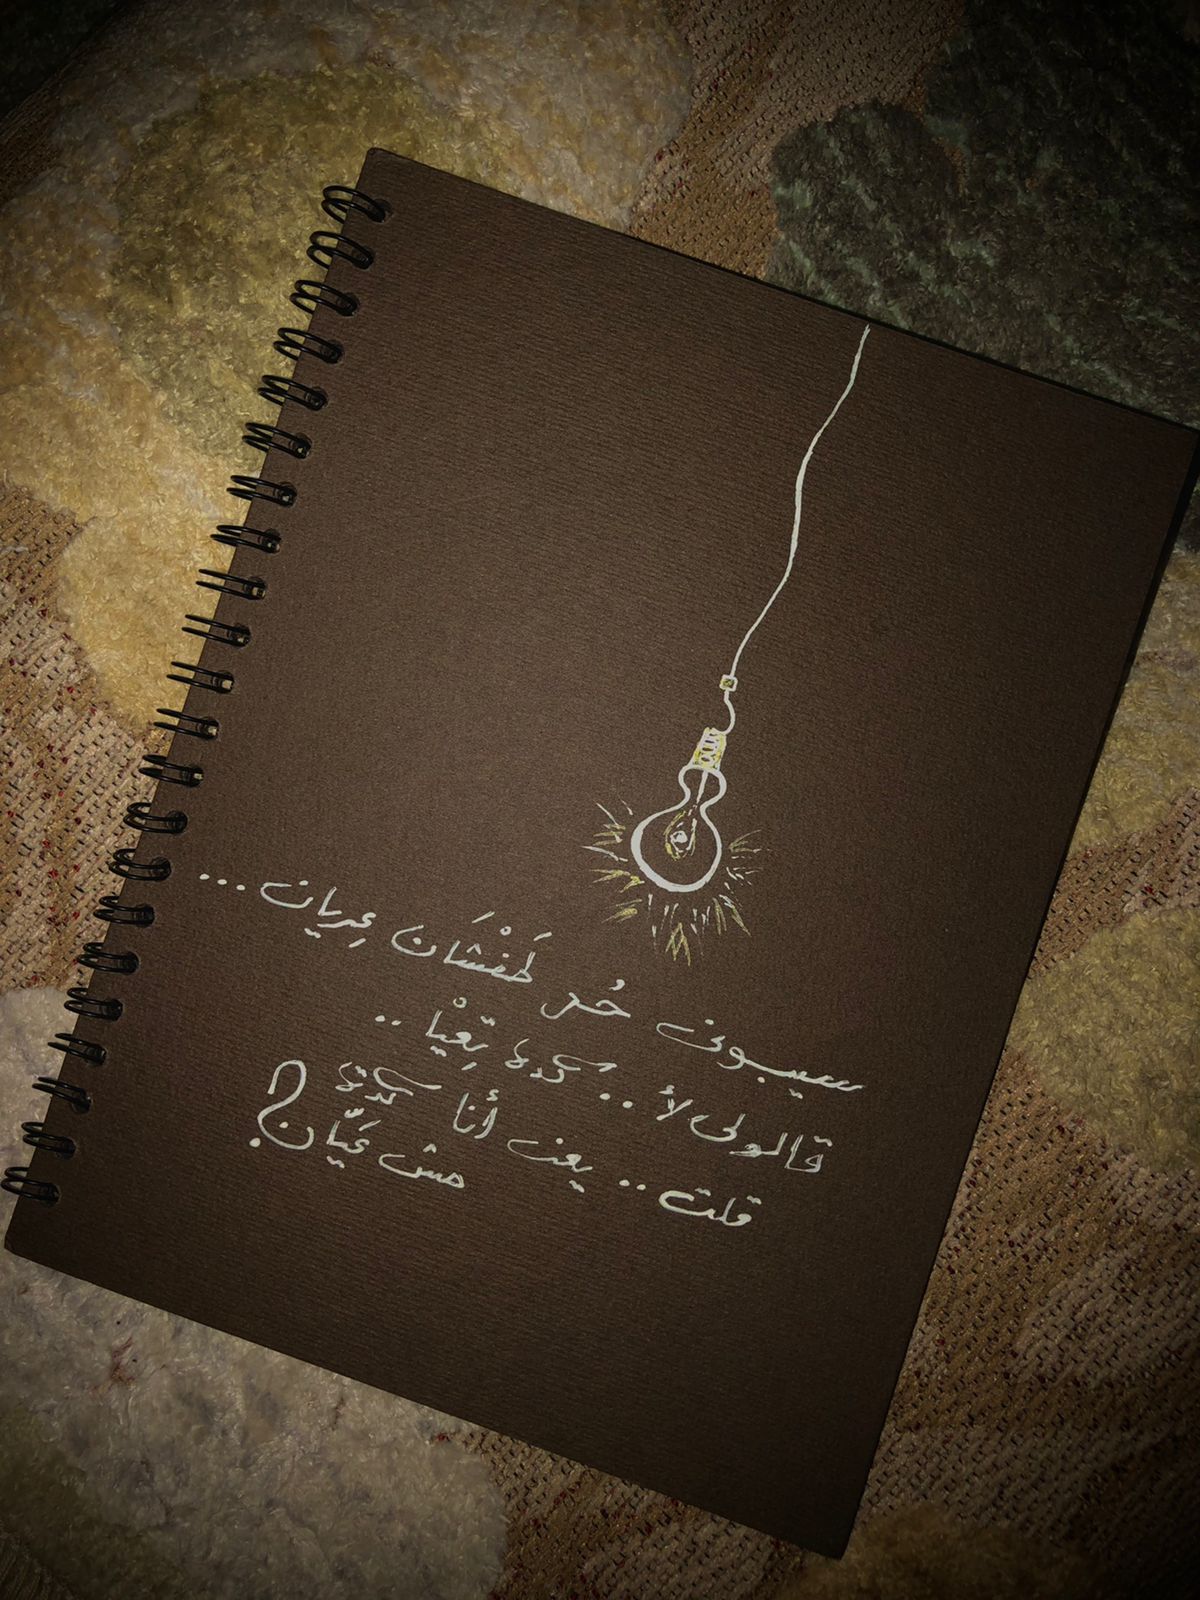 سيبونى حُر طَفْشَان عِريان ...
قالولى لأ .. كدها تِعْيا ..
قلت .. يعنى أنا كدتها
مش عَيّان ؟